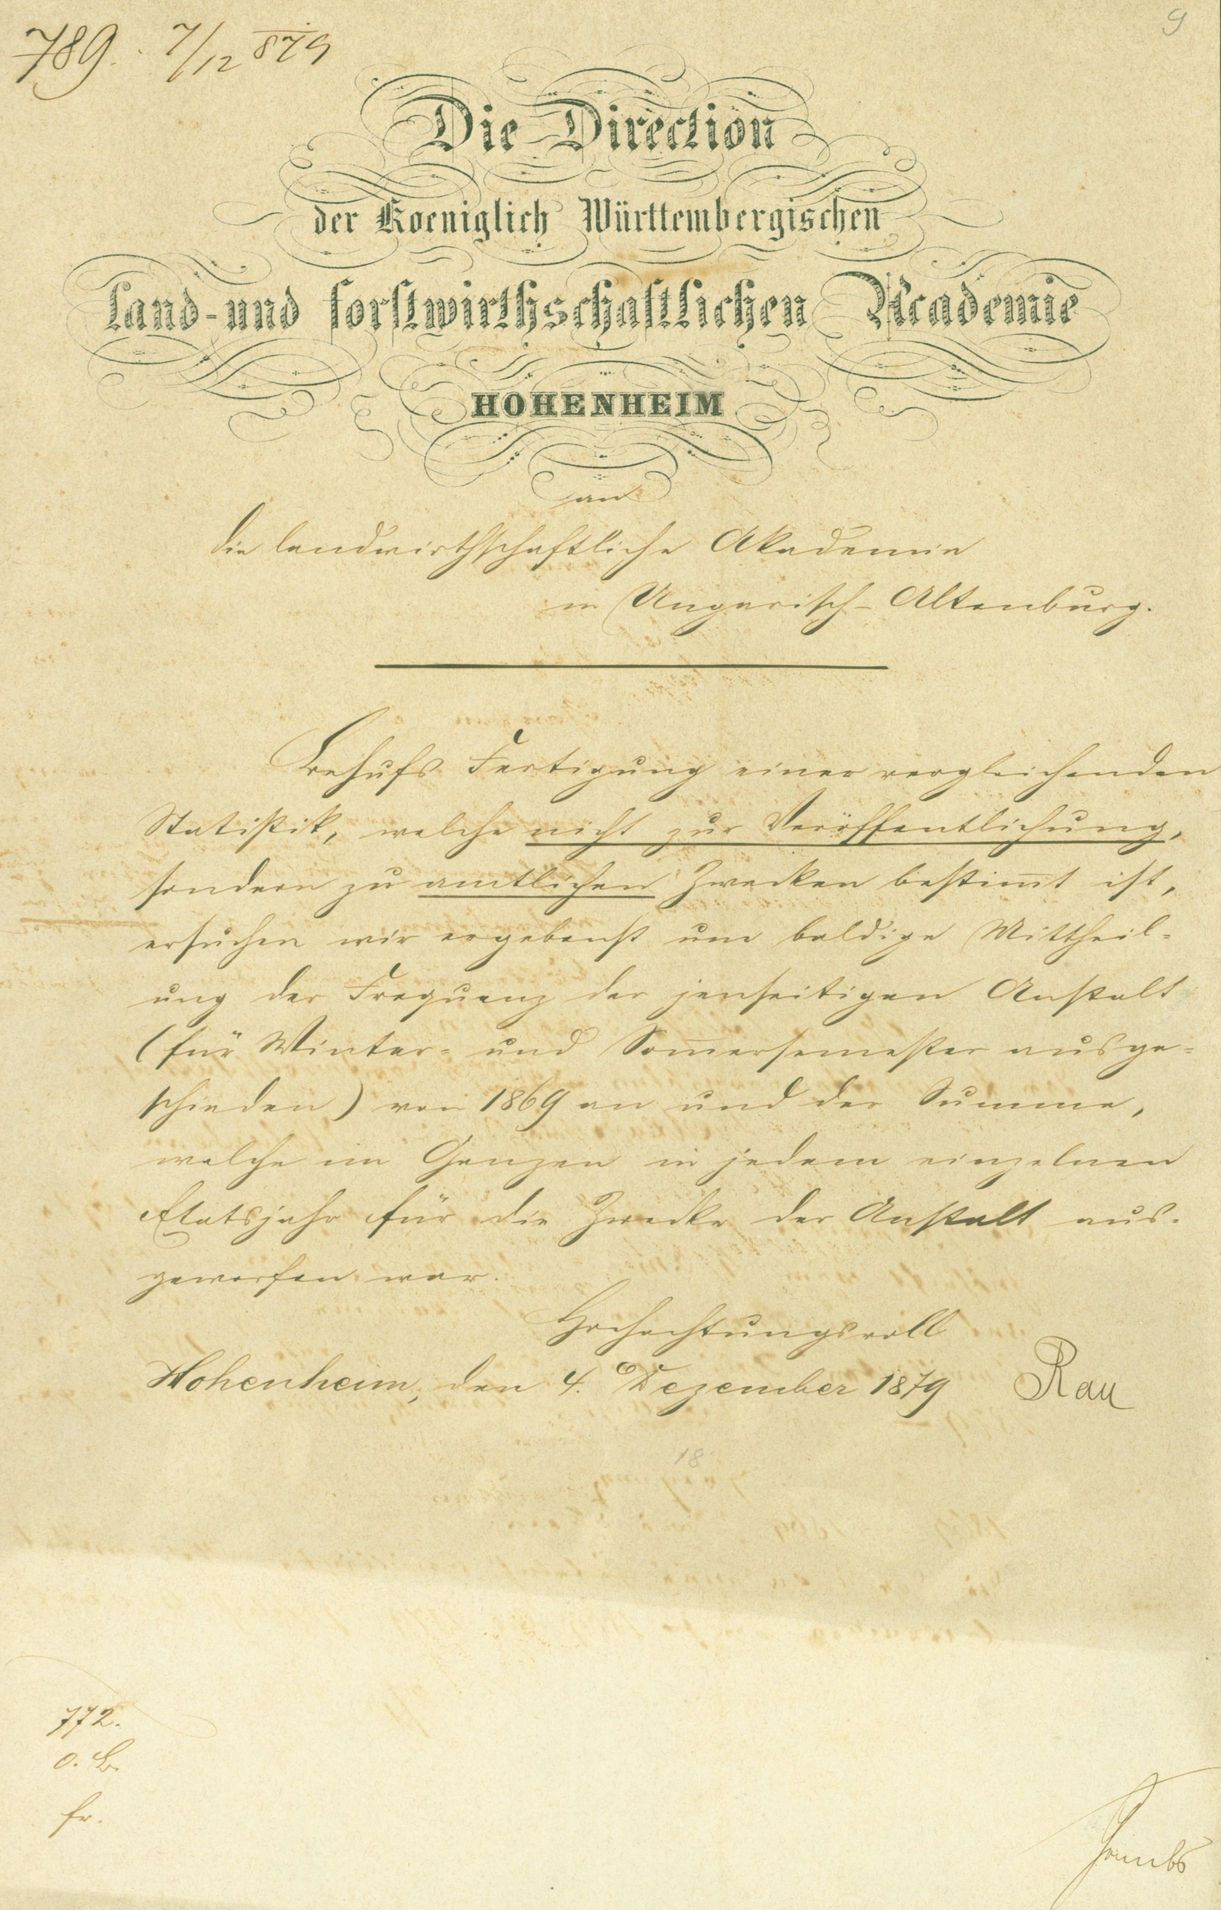 789. 7/12 879
9
Die Direction
der Koeniglich Württembergischen
Land- und forstwirthschaftlichen Academie
HOHENHEIM
an
die landwirthschaftliche Akademie
in Ungarisch-Altenburg.
Behufs Fertigung einer vergleichenden
Statistik, welche nicht zur Veröffentlichung,
sondern zu amtlichen Zwecken bestimt ist,
ersuchen wir ergebenst um baldige Mittheil-
ung der Frequenz der jenseitigen Anstalt
(für Winter- und Somersemester ausge-
schieden) von 1869 an und der Summe,
welche im Ganzen in jedem einzelnen
Etatsjahr für die Zwecke der Anstalt aus-
geworfen war.
Hochachtungsvoll
Hohenheim, den 4. Dezember 1879 Rau
18
772.
fr.